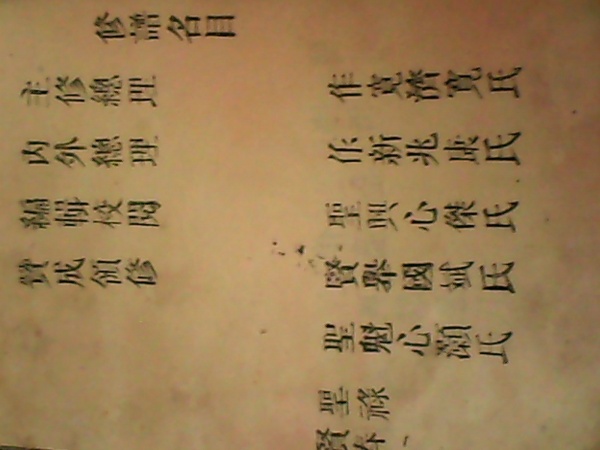 修譜名目
主修總理 作寬濟寬氏
內外總理 作新兆康氏
編輯校閱 聖興心傑氏
贊成領修 賢舉國斌氏
聖魁心灝氏
聖祿
賢